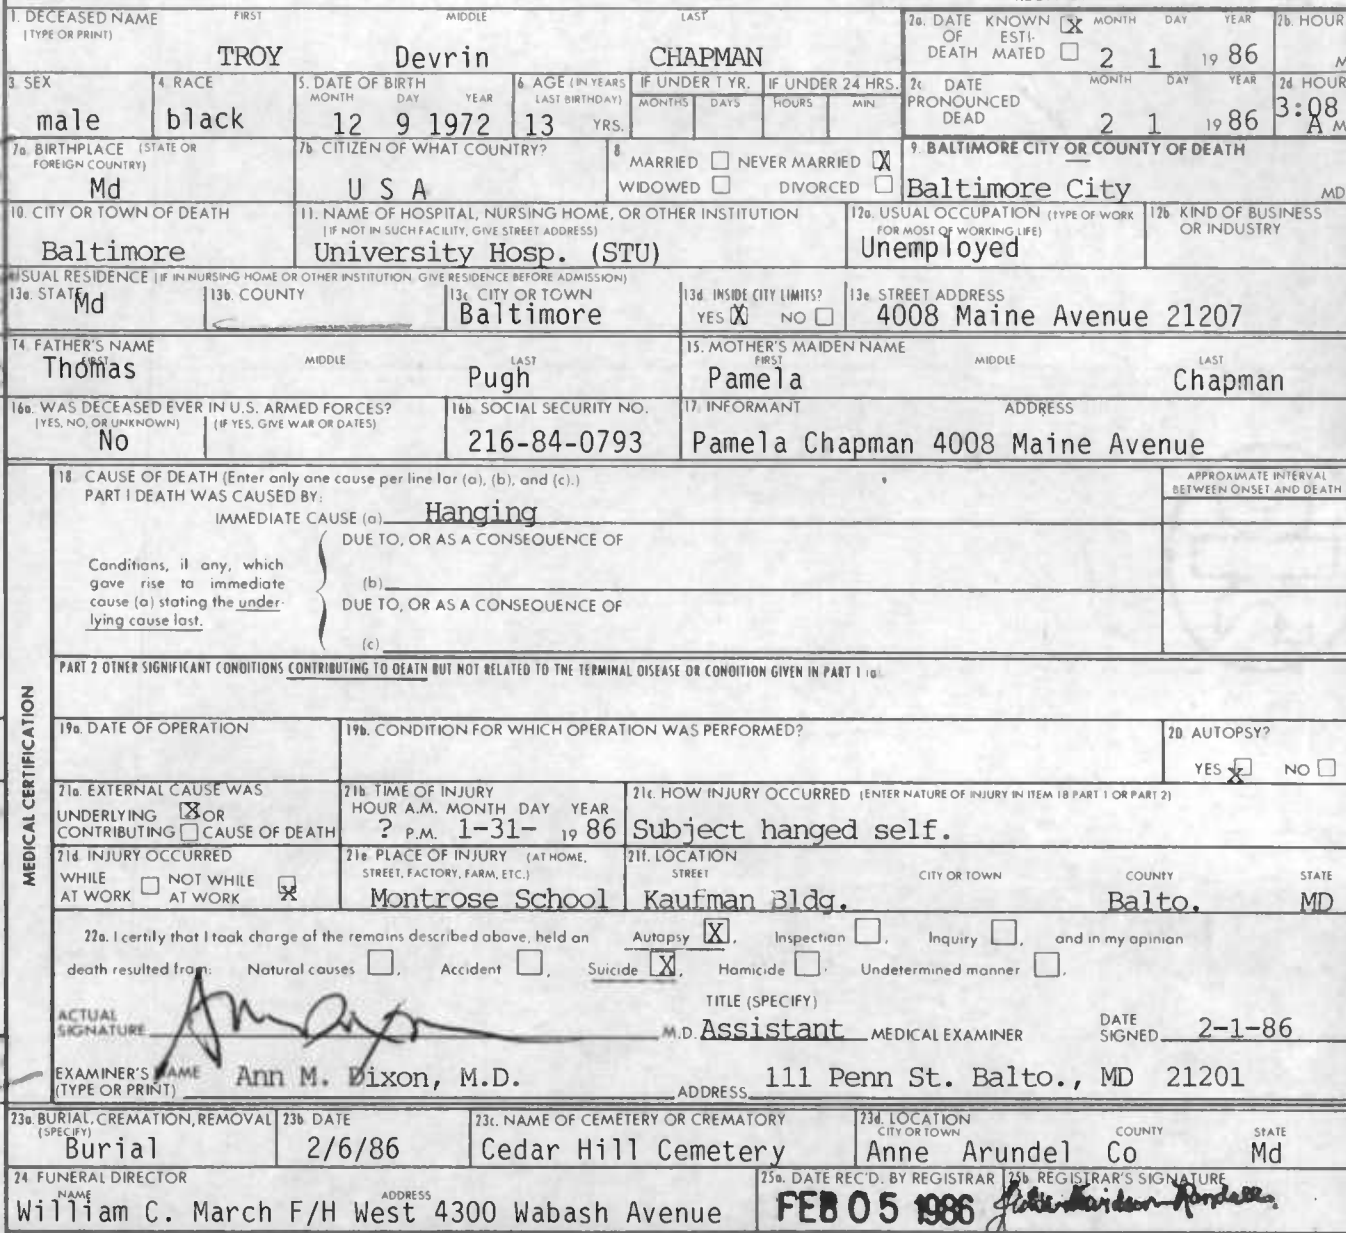 1. DECEASED NAME FIRST MIDDLE LAST
(TYPE OR PRINT)
TROY Devrin CHAPMAN
2a. DATE OF DEATH KNOWN [X] ESTIMATED [ ] MONTH DAY YEAR
2 1 19 86
2b. HOUR
M
3. SEX
male
4. RACE
black
5. DATE OF BIRTH
MONTH DAY YEAR
12 9 1972
6. AGE (IN YEARS LAST BIRTHDAY)
13 YRS.
IF UNDER 1 YR.
MONTHS DAYS
IF UNDER 24 HRS.
HOURS MIN
2c DATE PRONOUNCED DEAD MONTH DAY YEAR
2 1 19 86
2d HOUR
3:08
A M
7a. BIRTHPLACE (STATE OR FOREIGN COUNTRY)
Md
7b CITIZEN OF WHAT COUNTRY?
U S A
8
MARRIED [ ] NEVER MARRIED [X]
WIDOWED [ ] DIVORCED [ ]
9. BALTIMORE CITY OR COUNTY OF DEATH
Baltimore City MD
10. CITY OR TOWN OF DEATH
Baltimore
11. NAME OF HOSPITAL, NURSING HOME, OR OTHER INSTITUTION
(IF NOT IN SUCH FACILITY, GIVE STREET ADDRESS)
University Hosp. (STU)
12a. USUAL OCCUPATION (TYPE OF WORK FOR MOST OF WORKING LIFE)
Unemployed
12b KIND OF BUSINESS OR INDUSTRY
USUAL RESIDENCE (IF IN NURSING HOME OR OTHER INSTITUTION, GIVE RESIDENCE BEFORE ADMISSION)
13a. STATE
Md
13b. COUNTY
13c CITY OR TOWN
Baltimore
13d INSIDE CITY LIMITS?
YES [X] NO [ ]
13e STREET ADDRESS
4008 Maine Avenue 21207
14. FATHER'S NAME
FIRST MIDDLE LAST
Thomas Pugh
15. MOTHER'S MAIDEN NAME
FIRST MIDDLE LAST
Pamela Chapman
16a. WAS DECEASED EVER IN U.S. ARMED FORCES?
(YES, NO, OR UNKNOWN) (IF YES, GIVE WAR OR DATES)
No
16b SOCIAL SECURITY NO.
216-84-0793
17 INFORMANT ADDRESS
Pamela Chapman 4008 Maine Avenue
MEDICAL CERTIFICATION
18 CAUSE OF DEATH (Enter only one cause per line for (a), (b), and (c).)
PART I DEATH WAS CAUSED BY:
IMMEDIATE CAUSE (a) Hanging
APPROXIMATE INTERVAL BETWEEN ONSET AND DEATH
DUE TO, OR AS A CONSEQUENCE OF
Conditions, if any, which
gave rise to immediate
cause (a) stating the under-
lying cause last.
(b)
DUE TO, OR AS A CONSEQUENCE OF
(c)
PART 2 OTHER SIGNIFICANT CONDITIONS CONTRIBUTING TO DEATH BUT NOT RELATED TO THE TERMINAL DISEASE OR CONDITION GIVEN IN PART 1 (a)
19a. DATE OF OPERATION
19b. CONDITION FOR WHICH OPERATION WAS PERFORMED?
20 AUTOPSY?
YES [X] NO [ ]
21a. EXTERNAL CAUSE WAS
UNDERLYING [X] OR
CONTRIBUTING [ ] CAUSE OF DEATH
21b TIME OF INJURY
HOUR A.M. MONTH DAY YEAR
? P.M. 1-31- 19 86
21c. HOW INJURY OCCURRED (ENTER NATURE OF INJURY IN ITEM 18 PART 1 OR PART 2)
Subject hanged self.
21d INJURY OCCURRED
WHILE AT WORK [ ] NOT WHILE AT WORK [X]
21e PLACE OF INJURY (AT HOME, STREET, FACTORY, FARM, ETC.)
Montrose School
21f. LOCATION
STREET CITY OR TOWN COUNTY STATE
Kaufman Bldg. Balto. MD
22a. I certify that I took charge of the remains described above, held an Autopsy [X], Inspection [ ], Inquiry [ ], and in my opinion
death resulted from: Natural causes [ ], Accident [ ], Suicide [X], Homicide [ ], Undetermined manner [ ].
ACTUAL SIGNATURE M.D.
TITLE (SPECIFY)
Assistant MEDICAL EXAMINER
DATE SIGNED 2-1-86
EXAMINER'S NAME (TYPE OR PRINT) Ann M. Dixon, M.D.
ADDRESS 111 Penn St. Balto., MD 21201
23a. BURIAL, CREMATION, REMOVAL (SPECIFY)
Burial
23b DATE
2/6/86
23c. NAME OF CEMETERY OR CREMATORY
Cedar Hill Cemetery
23d. LOCATION
CITY OR TOWN COUNTY STATE
Anne Arundel Co Md
24 FUNERAL DIRECTOR
NAME ADDRESS
William C. March F/H West 4300 Wabash Avenue
25a. DATE REC'D. BY REGISTRAR
FEB 05 1986
25b REGISTRAR'S SIGNATURE